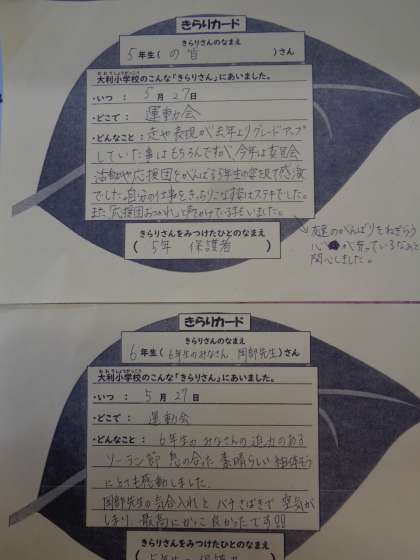 きらりカード
きらりさんのなまえ
5年生(の皆)さん
大利小学校のこんな「きらりさん」にあいました。
・いつ : 5月27日
・どこで : 運動会
・どんなこと: 走や表現が去年よりグレードアップ
していた事はもちろんですが、今年は委員会
活動や応援団をがんばる5年生の姿を見て感激
でした。自分の仕事をきっちりこなす姿はステキでした。
また「応援団おつかれ」と声かけている子もいました。
友達のがんばりをねぎらう
心が育っているなあと
関心しました。
きらりさんをみつけたひとのなまえ
(5年 保護者)
きらりカード
きらりさんのなまえ
6年生(6年生のみなさん 岡部先生)さん
大利小学校のこんな「きらりさん」にあいました。
・いつ : 5月27日
・どこで : 運動会
・どんなこと: 6年生のみなさんの迫力のある
ソーラン節 息の合った素晴らしい組体そう
にとても感動しました。
岡部先生の気合入れとバチさばきで空気が
しまり、最高にかっこ良かったです!!
きらりさんをみつけたひとのなまえ